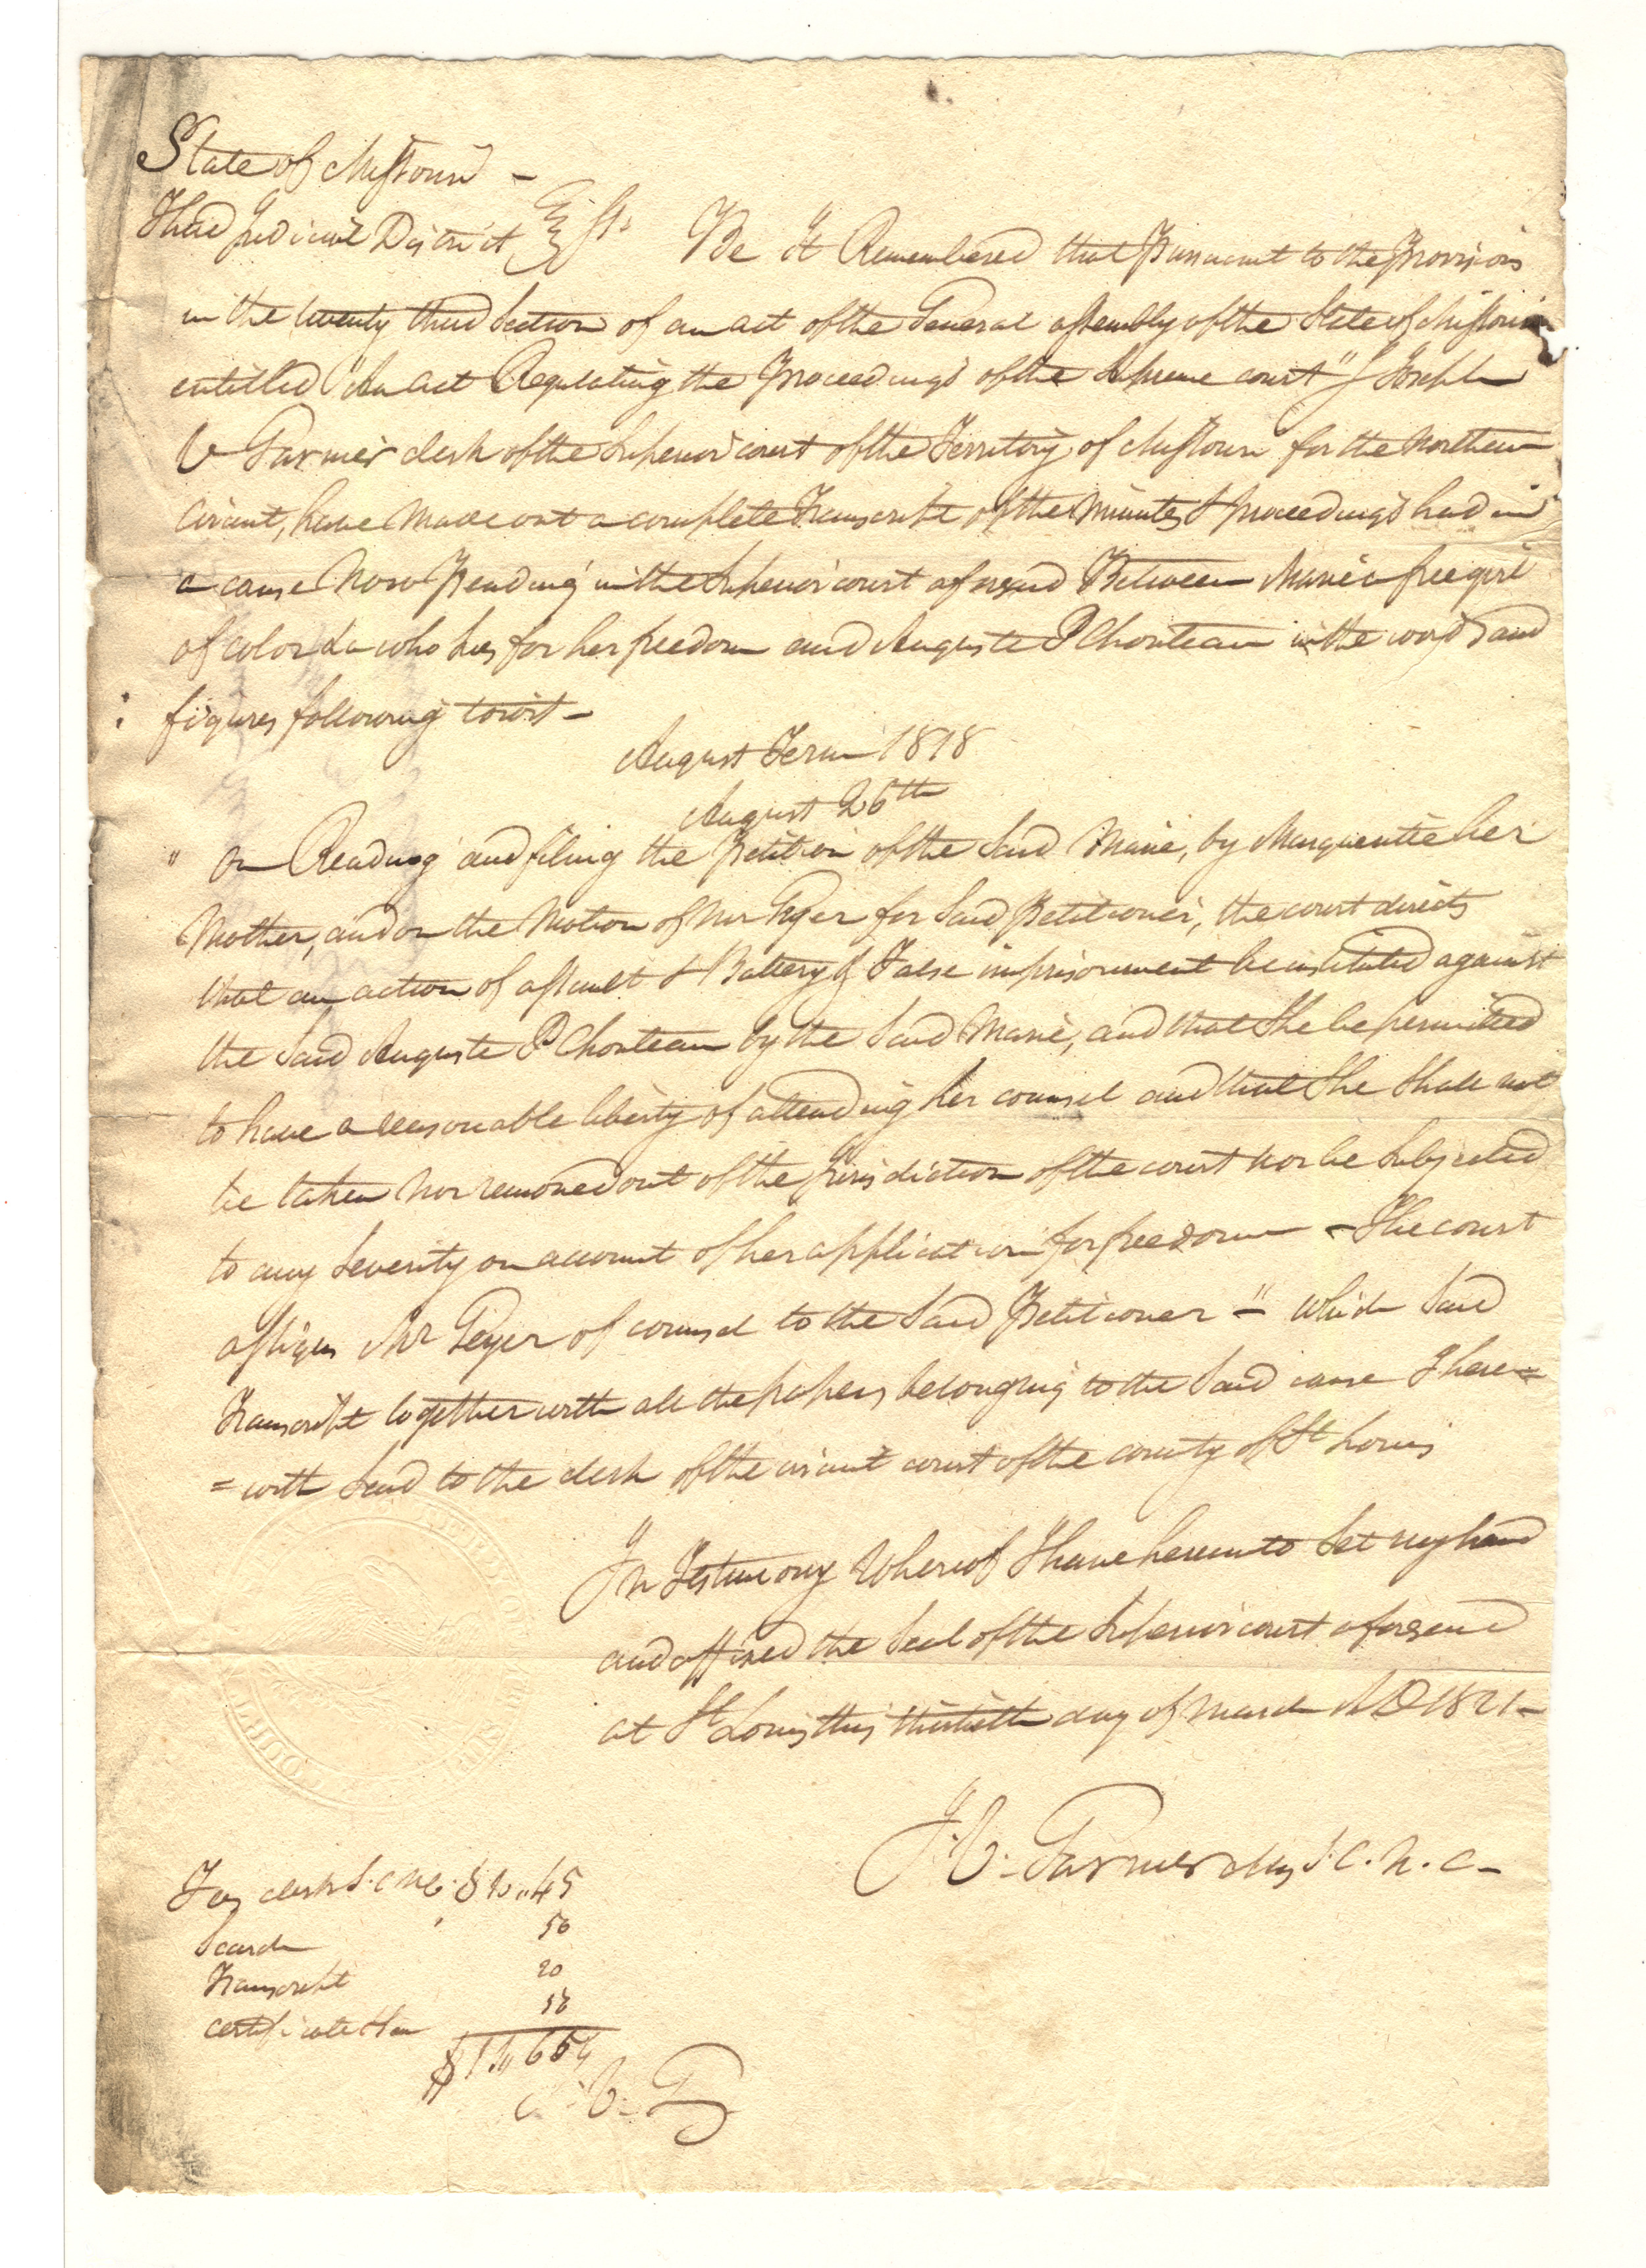 State of Missouri -
Third Judicial District } Ss. Be It Remembered that Pursuant to the Provisions
in the twenty third Section of an act of the General assembly of the State of Missouri
entitled "An act Regulating the Proceedings of the Supreme court" I Joseph
V Garnier clerk of the Superior court of the Territory of Missouri for the Northern
Circuit, have Made out a complete Transcript of the Minutes & proceedings had in
a cause Now Pending in the Superior court aforesaid Between Marie a free girl
of color &c who sues for her freedom and Auguste P Chouteau in the words and
figures following towit -
August Term 1818
August 26th
" On Reading and filing the Petition of the Said Marie, by Marguerite her
Mother, and on the Motion of Mr Geyer for Said Petitioner, the court directs
that an action of assault & Battery & False imprisonment be instituted against
the Said Auguste P Chouteau by the Said Marie, and that She be permitted
to have a reasonable liberty of attending her counsel and that She Shall not
be taken Nor removed out of the jurisdiction of the court nor be Subjected
to any Severity on account of her application for freedom - The court
assigns Mr Geyer of counsel to the Said Petitioner -" which Said
Transcript together with all the papers belonging to the Said cause I here=
=with Send to the clerk of the circuit court of the county of St Louis
In Testimony Whereof I have hereunto Set my hand
and affixed the Seal of the Superior court aforesaid
at St Louis this thirtieth day of March AD 1821 -
J. V. Garnier clk S. C. N. C -
Fees clerk S. C N C.
Search 50
Transcript 20
certificate &
J. V. G